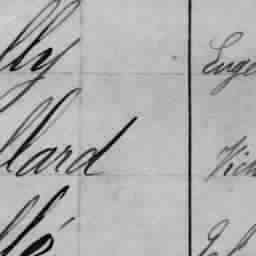 lly Euge
llard Vict
llé